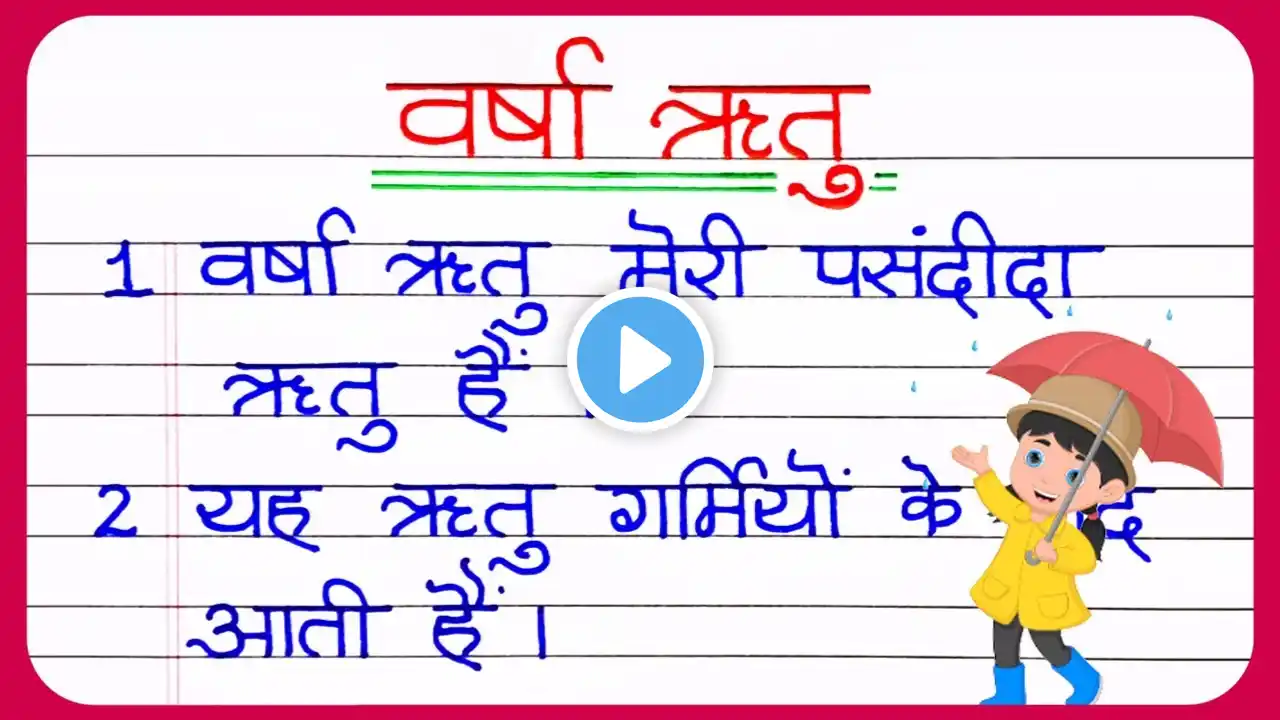 वर्षा ऋतु
1 वर्षा ऋतु मेरी पसंदीदा
ऋतु हैं
2 यह ऋतु गर्मियों के
आती हैं।